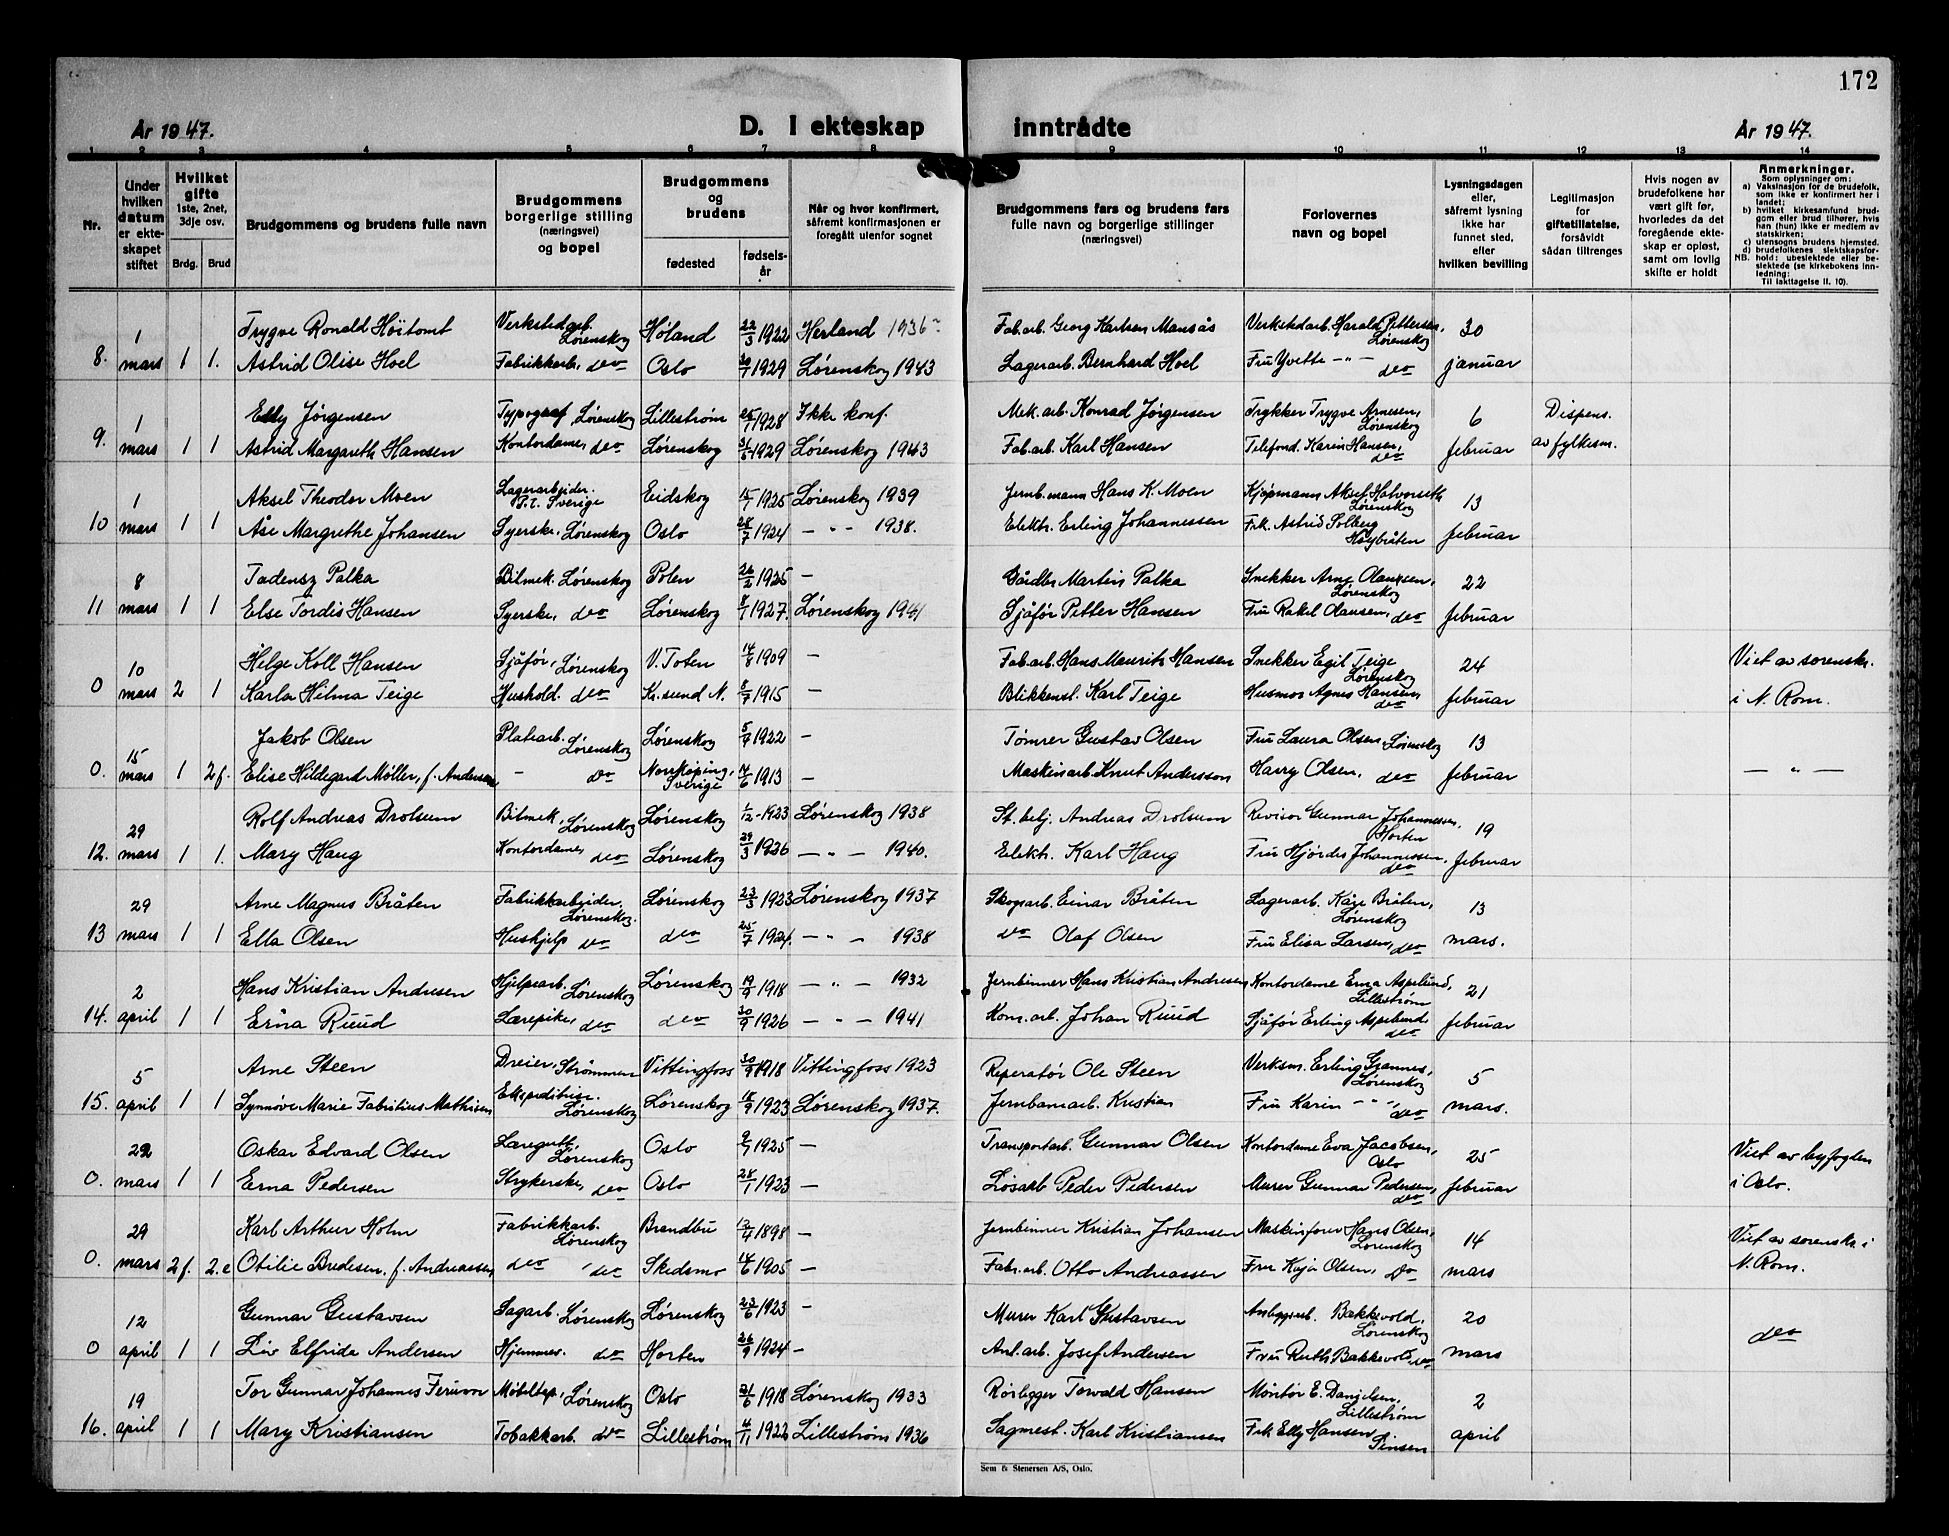 172
År 1947. D. I ekteskap inntrådte År 1947.
1 2 3 4 5 6 7 8 9 10 11 12 13 14
Nr.
Under hvilken datum er ekteskapet stiftet
Hvilket gifte 1ste, 2net, 3dje osv.
Brdg. Brud
Brudgommens og brudens fulle navn
Brudgommens borgerlige stilling (næringsvei) og bopel
Brudgommens og brudens
fødested fødselsår
Når og hvor konfirmert, såfremt konfirmasjonen er foregått utenfor sognet
Brudgommens fars og brudens fars fulle navn og borgerlige stillinger (næringsvei)
Forlovernes navn og bopel
Lysningsdagen eller, såfremt lysning ikke har funnet sted, efter hvilken bevilling
Legitimasjon for giftetillatelse, forsåvidt sådan tiltrenges
Hvis nogen av brudefolkene har vært gift før, hvorledes da det foregående ekteskap er opløst, samt om lovlig skifte er holdt
Anmerkninger.
Som oplysninger om:
a) Vaksinasjon for de brudefolk, som ikke er konfirmert her i landet;
b) hvilket kirkesamfund brudgom eller brud tilhører, hvis han (hun) ikke er medlem av statskirken;
c) utensogns brudens hjemsted.
d) brudefolkenes slektskapsforhold: ubeslektede eller beslektede (se kirkebokens innledning:
NB.
Til iakttagelse II. 10).
1 Trygve Ronald Höitomt Verkstedarb. Lørenskog Høland 22/3 1922 Herland 1936 Fab.arb. Georg Karlsen Mansås Verkstedarb. Harald Pettersen, Lørenskog 30
8. mars 1 1. Astrid Olise Hoel Fabrikkarb. do Oslo 1929 Lørenskog 1943 Lagerarb. Bernhard Hoel Fru Yvette - " - do januar
1 Elly Jörgensen Typograf Lørenskog Lillestrøm 1928 Ikke konf. Mek. arb. Konrad Jørgensen Trykker Trygve Arnesen, Lørenskog 6 Dispens.
9. mars 1 1 Astrid Margareth Hansen Kontordame, do Lørenskog 1929 Lørenskog 1943 Fab.arb. Karl Hansen Telefond. Karin Hansen, do februar av fylkesm.
1 Aksel Theodor Moen Lagerarbeider. P.t. Sverige Eidskog 1925 Lørenskog 1939 Jernb.mann Hans K. Moen Kjøpmann Aksel Halvorseth Lørenskog 13
10 mars 1 1 Åse Margrethe Johansen Syerske, Lørenskog Oslo 28/7 1924 - " - 1938. Elektr. Erling Johannessen Frk. Astrid Solberg Høybråten februar
8 Tadensz Palka Bilmek. Lørenskog Polen 26/2 1925 - Gårdbr. Martin Palka Snekker Arne Olaussen, Lørenskog 22
11 mars 1 1 Else Tordis Hansen Syerske, do Lørenskog 8/1 1927. Lørenskog 1941 Sjåfør Petter Hansen Fru Rakel Olausen, do februar
10 Helge Koll Hansen Sjåfør, Lørenskog V. Toten 14/8 1909 - Fab.arb. Hans Maurits Hansen Snekker Egil Teige Lørenskog 24 Viet av sorenskr.
0 mars 2 1 Karla Hilma Teige Hushold. do Kr.sund N. 8/7 1915 - Blikkensl. Karl Teige Husmor Agnes Hansen do februar i N. Rom.
15 Jakob Olsen Platearb. Lørenskog Lørenskog 1922 - Tømrer Gustav Olsen Fru Laura Olsen, Lørenskog 13
0. mars 1 2 f. Elise Hildegard Møller, f. Andersen - do Norrköping, Sverige 1913 - Maskinarb. Knut Andersson Harry Olsen, do februar - " -
29 Rolf Andreas Drolsum Bilmek. Lørenskog Lørenskog 1/12 1923 Lørenskog 1938 St. betj. Andreas Drolsum Revisor Gunnar Johannessen, Horten 19
12. mars 1 1. Mary Haug Kontordame, do Lørenskog 29/3 1926 - " - 1940. Elektr. Karl Haug Fru Hjördis Johannessen, do februar
29 Arne Magnus Bråten Fabrikkarbeider. Lørenskog. Lørenskog 23/3 1923 Lørenskog 1937 Skogsarb. Einar Bråten Lagerarb. Kåre Bråten, Lørenskog 13
13 mars 1 1 Ella Olsen Hushjelp do do 25/7 1924. - " - 1938 do Olaf Olsen Fru Elisa Larsen, do mars.
2 Hans Kristian Andresen Hjelpearb. Lørenskog Lørenskog 19/9 1918 - " - 1932 Jernbinner Hans Kristian Andresen Kontordame Erna Aspelund, Lillestrøm 21
14. april 1 1 Erna Ruud Lærepike, do do 30/9 1926 - " - 1941 Kom. arb. Johan Ruud Sjåfør Erling Aspelund do februar
5 Arne Steen Dreier, Strømmen Vittingfoss 1918 Vittingfoss 1923 Reperatør Ole Steen Verksm. Erling Grannes, Lørenskog 5
15. april 1 1 Synnøve Marie Fabritius Mathisen Ekspeditrise. Lørenskog Lørenskog 18/9 1923 Lørenskog 1937. Jernbanearb. Kristian Fru Karin - " - , do mars.
29 Oskar Edvard Olsen Læregutt, Lørenskog Oslo 1925 - Transportarb. Gunnar Olsen Kontordame Eva Jacobsen, Oslo 25 Viet av byfogden
0. mars 1 1 Erna Pedersen Strykerske, do Oslo 28/1 1923 - Løsarb Peder Pedersen Murer Gunnar Pedersen, do februar i Oslo.
29 Karl Arthur Holm Fabrikkarb. Lørenskog Brandbu 13/4 1898 - Jernbinner Kristian Johansen Maskinfører Hans Olsen, Lørenskog 14 Viet av sorenskr. i
0. mars 2 f. 2. e Otilie Bredesen, f. Andreassen do do Skedsmo 14/6 1905 - Fabr.arb. Otto Andreassen Fru Kaja Olsen, do mars N. Rom.
12 Gunnar Gustavsen Sagarb. Lørenskog Lørenskog 23/6 1923 - Murer Karl Gustavsen Bakkevold, Lørenskog 20
0 april 1 1 Liv Elfride Andersen Hjemmev. do Horten 26/9 1924 - Anl.arb. Josef Andersen Fru Ruth Bakkevold, do mars do
19 Tor Gunnar Johannes Møbeltap., Lørenskog Oslo 21/6 1918 Lørenskog 1933 Rørlegger Torvald Hansen Montør E. Danielsen, Lillestrøm 2
16. april 1 1 Mary Kristiansen Tobakkarb. do Lillestrøm 4/11 1922 Lillestrøm 1936 Sagmest. Karl Kristiansen Frk Elly Hansen Sinsen april
Sem & Stenersen A/S, Oslo.